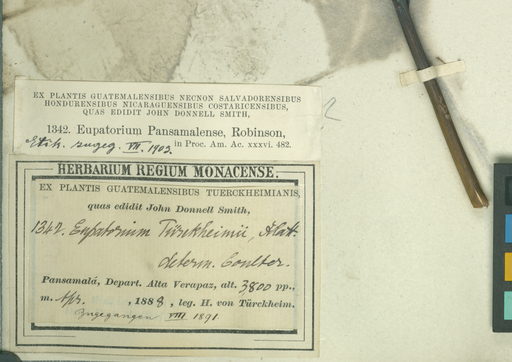 EX PLANTIS GUATEMALENSIBUS NECNON SALVADORENSIBUS
HONDURENSIBUS NICARAGUENSIBUS COSTARICENSIBUS,
QUAS EDIDIT JOHN DONNELL SMITH,
1342. Eupatorium Pansamalense, Robinson,
Etik. zugeg. VII. 1903. in Proc. Am. Ac. xxxvi. 482.
HERBARIUM REGIUM MONACENSE.
EX PLANTIS GUATEMALENSIBUS TUERCKHEIMIANIS,
quas edidit John Donnell Smith,
1342. Eupatorium Türckheimii, Klatt.
determ. Coulter.
Pansamalá, Depart. Alta Verapaz, alt. 3800 pp.,
m. Apr. , 1888, leg. H. von Türckheim.
Zugegangen VIII 1891.